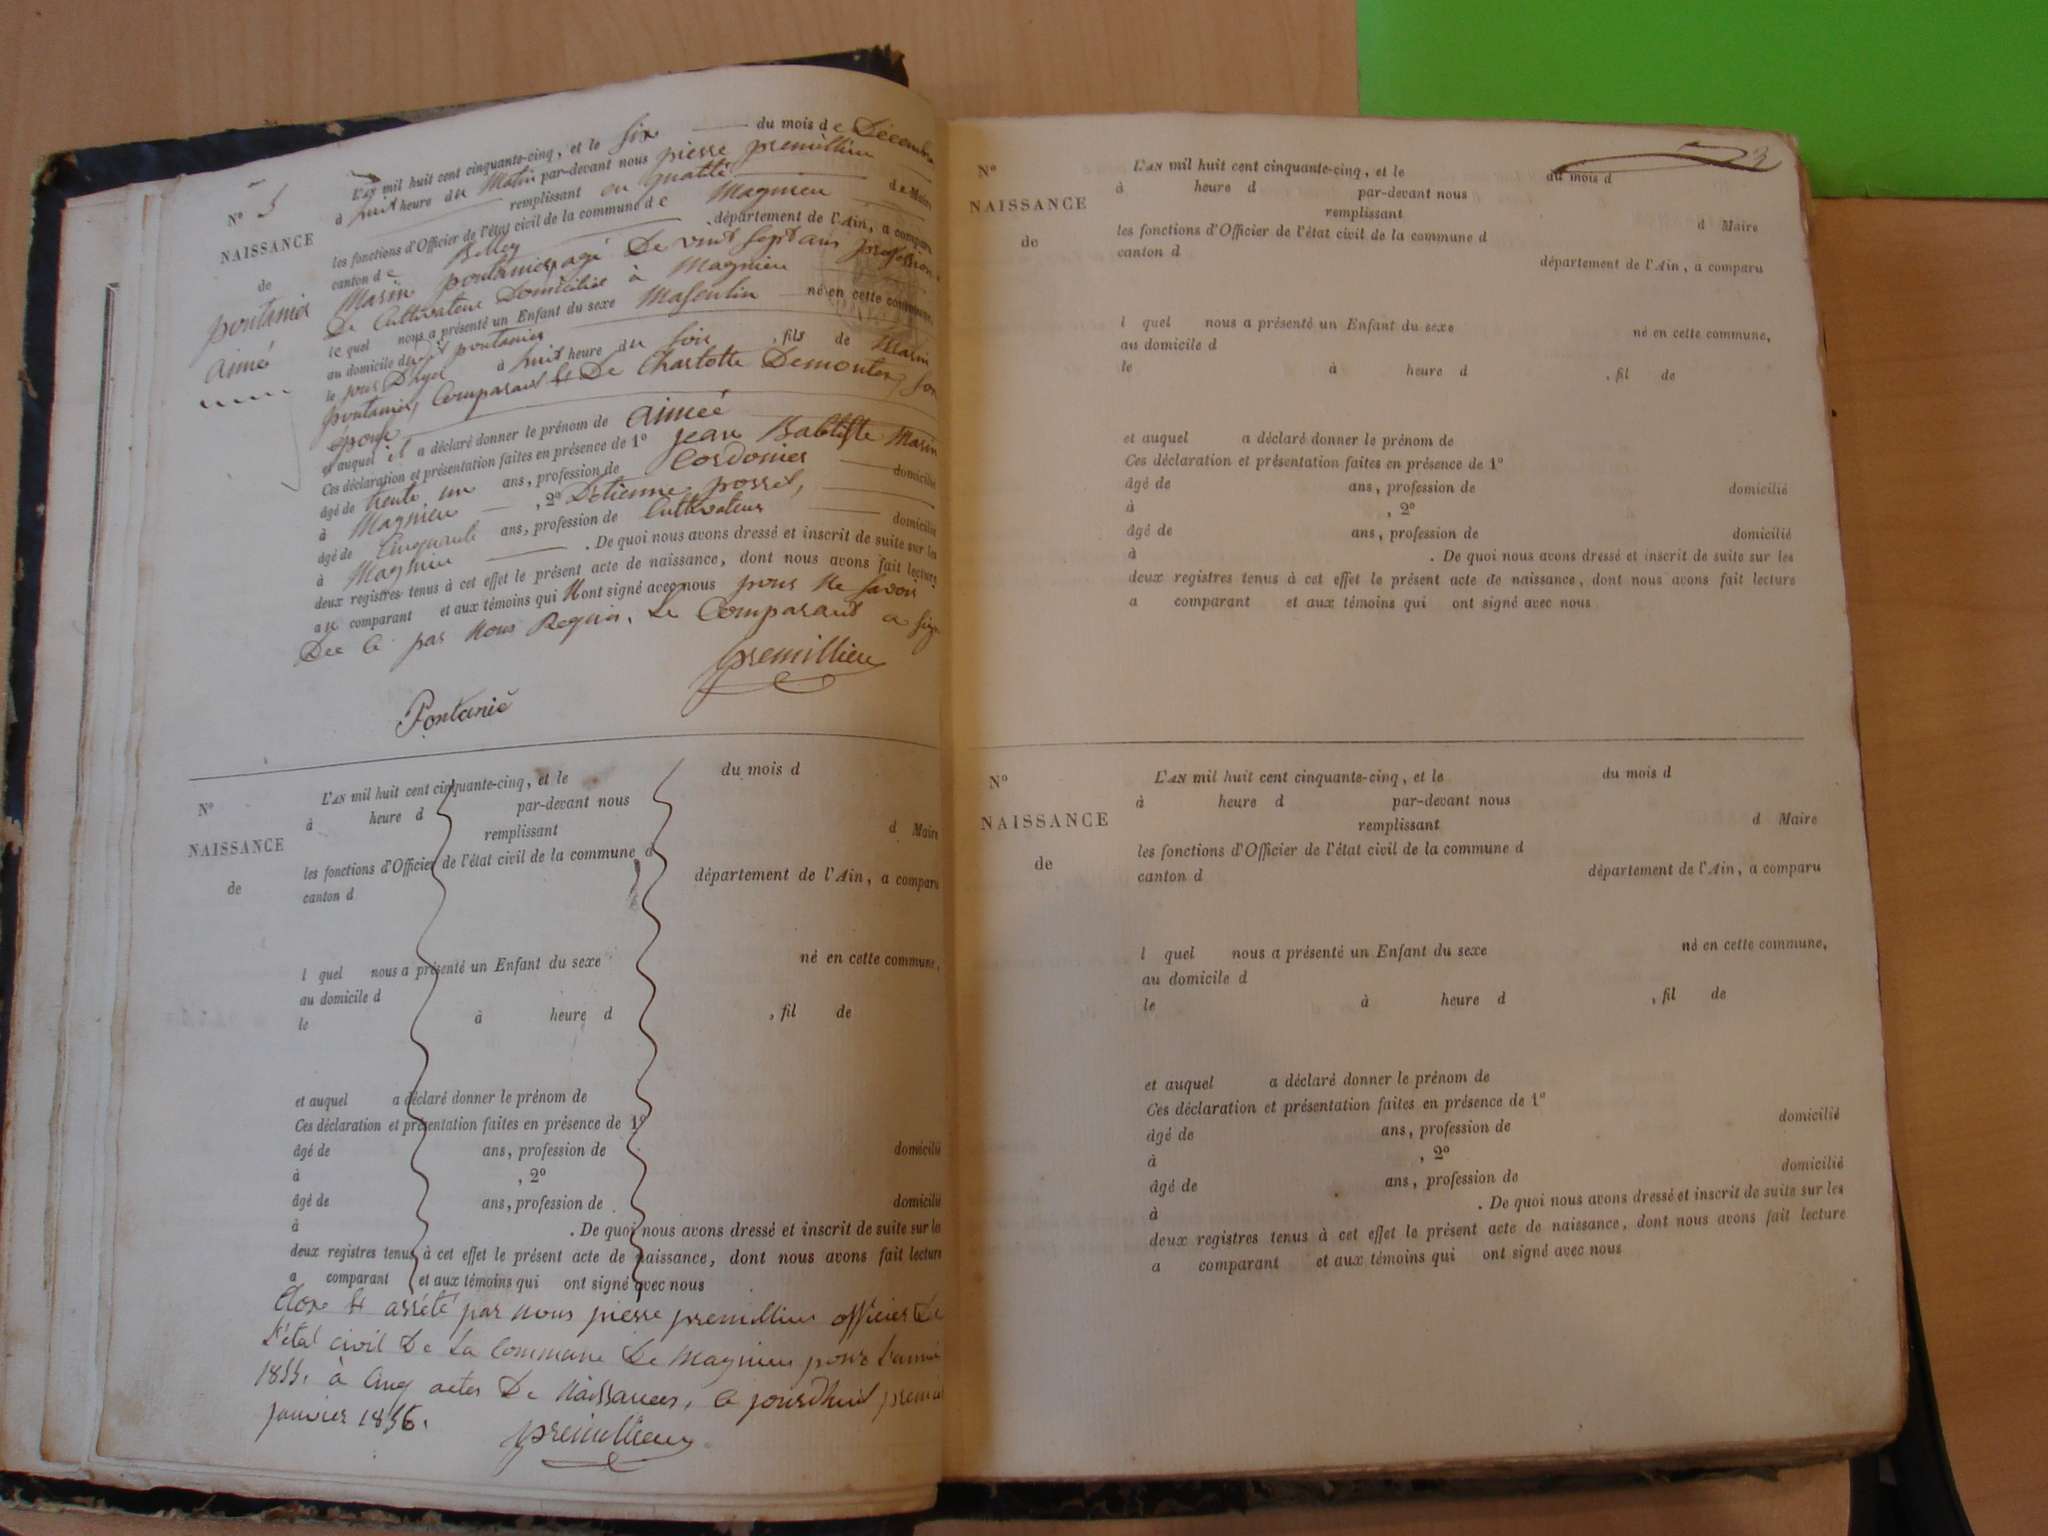 N° 5
NAISSANCE
de
pontanier
aimé
L'AN mil huit cent cinquante-cinq, et le six du mois de Décembre
à huit heure du Matin par-devant nous pierre premillieu
remplissant en qualité de Maire
les fonctions d'Officier de l'état civil de la commune de Magnieu
canton de Belley département de l'Ain, a comparu
Marin pontanier, agé De vint sept ans profession
De Cultivateur Domicilié à Magnieu
le quel nous a présenté un Enfant du sexe Masculin né en cette commune,
au domicile du dit pontanier
le jour D'hyer à huit heure du soir, fils de Marin
pontanier, Comparant et De Charlotte Demontez, son
épouse
et auquel il a déclaré donner le prénom de aimeé
Ces déclaration et présentation faites en présence de 1° jean Babtiste Marin
âgé de trente un ans, profession de Cordonier domicilié
à Magnieu, 2° D'étienne posset,
âgé de Cinquante ans, profession de Cultivateur domicilié
à Magnieu. De quoi nous avons dressé et inscrit de suite sur les
deux registres tenus à cet effet le présent acte de naissance, dont nous avons fait lecture
au comparant et aux témoins qui Nont signé avec nous pour ne savoir
De ce par Nous Requis. Le Comparant a signé
premillieu
Pontanié
N°
NAISSANCE
de
L'AN mil huit cent cinquante-cinq, et le du mois d
à heure d par-devant nous
remplissant d Maire
les fonctions d'Officier de l'état civil de la commune d
canton d département de l'Ain, a comparu
l quel nous a présenté un Enfant du sexe né en cette commune,
au domicile d
le à heure d , fil de
et auquel a déclaré donner le prénom de
Ces déclaration et présentation faites en présence de 1°
âgé de ans, profession de domicilié
à , 2°
âgé de ans, profession de domicilié
à . De quoi nous avons dressé et inscrit de suite sur les
deux registres tenus à cet effet le présent acte de naissance, dont nous avons fait lecture
a comparant et aux témoins qui ont signé avec nous
Clos et arrété par nous pierre premillieu officier De
L'état civil De La Commune De Magnieu pour L'année
1855. à Cinq actes De Naissances, ce jourdhuit premier
janvier 1856.
premillieu
3
N°
NAISSANCE
de
L'AN mil huit cent cinquante-cinq, et le du mois d
à heure d par-devant nous
remplissant d Maire
les fonctions d'Officier de l'état civil de la commune d
canton d département de l'Ain, a comparu
l quel nous a présenté un Enfant du sexe né en cette commune,
au domicile d
le à heure d , fil de
et auquel a déclaré donner le prénom de
Ces déclaration et présentation faites en présence de 1°
âgé de ans, profession de domicilié
à , 2°
âgé de ans, profession de domicilié
à . De quoi nous avons dressé et inscrit de suite sur les
deux registres tenus à cet effet le présent acte de naissance, dont nous avons fait lecture
a comparant et aux témoins qui ont signé avec nous
N°
NAISSANCE
de
L'AN mil huit cent cinquante-cinq, et le du mois d
à heure d par-devant nous
remplissant d Maire
les fonctions d'Officier de l'état civil de la commune d
canton d département de l'Ain, a comparu
l quel nous a présenté un Enfant du sexe né en cette commune,
au domicile d
le à heure d , fil de
et auquel a déclaré donner le prénom de
Ces déclaration et présentation faites en présence de 1°
âgé de ans, profession de domicilié
à , 2°
âgé de ans, profession de domicilié
à . De quoi nous avons dressé et inscrit de suite sur les
deux registres tenus à cet effet le présent acte de naissance, dont nous avons fait lecture
a comparant et aux témoins qui ont signé avec nous